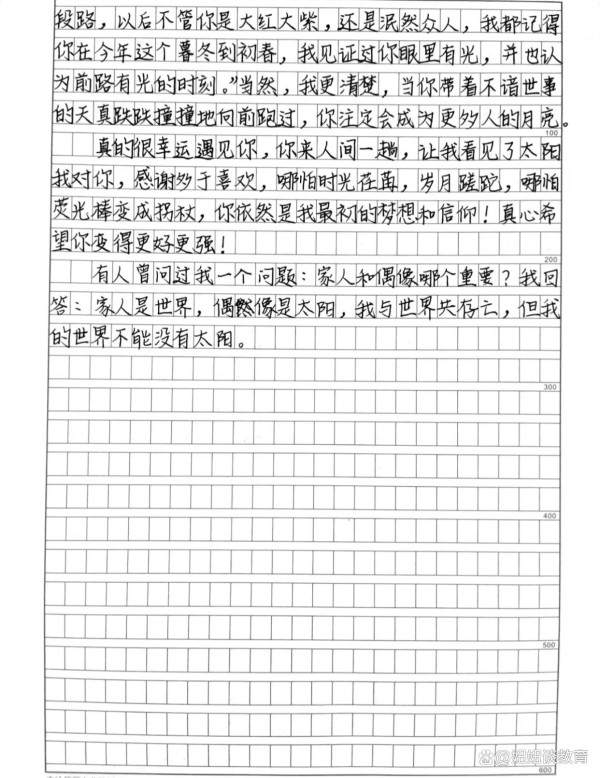 段路，以后不管你是大红大柴，还是泯然众人，我都记得
你在今年这个暮冬到初春，我见证过你眼里有光，并也认
为前路有光的时刻。”当然，我更清楚，当你带着不谙世事
的天真跌跌撞撞地向前跑过，你注定会成为更多人的月亮。
100
真的很幸运遇见你，你来人间一趟，让我看见了太阳
我对你，感谢多于喜欢，哪怕时光荏苒，岁月蹉跎，哪怕
荧光棒变成拐杖，你依然是我最初的梦想和信仰！真心希
望你变得更好更强！
200
有人曾问过我一个问题：家人和偶像哪个重要？我回
答：家人是世界，偶像是太阳，我与世界共存亡，但我
的世界不能没有太阳。
300
400
500
600
@姐姐谈教育